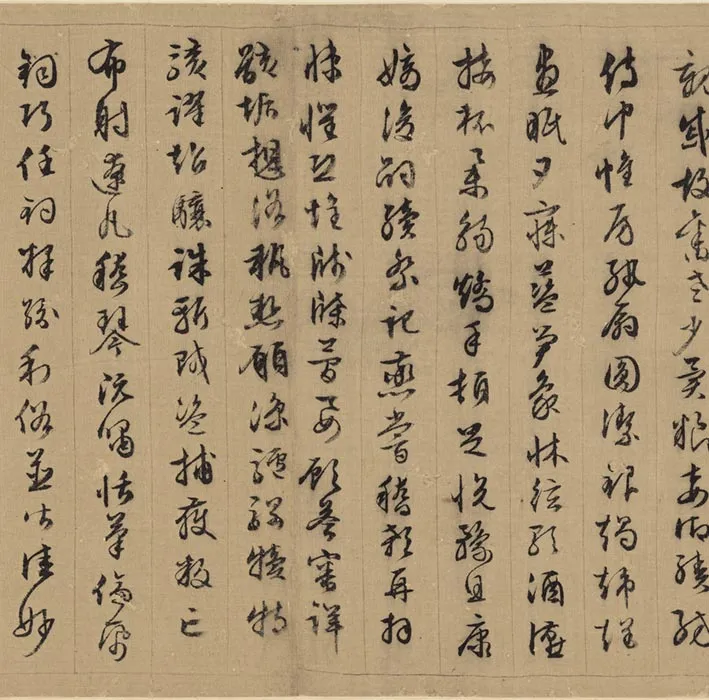 親戚故舊老少異糧妾御績紡
侍巾帷房紈扇圓潔銀燭煒煌
晝眠夕寐藍笋象牀弦歌酒讌
接杯舉觴矯手頓足悅豫且康
嫡後嗣續祭祀蒸嘗稽顙再拜
悚懼恐惶牋牒簡要顧答審詳
骸垢想浴執熱願涼驢騾犢特
駭躍超驤誅斬賊盜捕獲叛亡
布射遼丸嵇琴阮嘯恬筆倫紙
鈞巧任釣釋紛利俗並皆佳妙